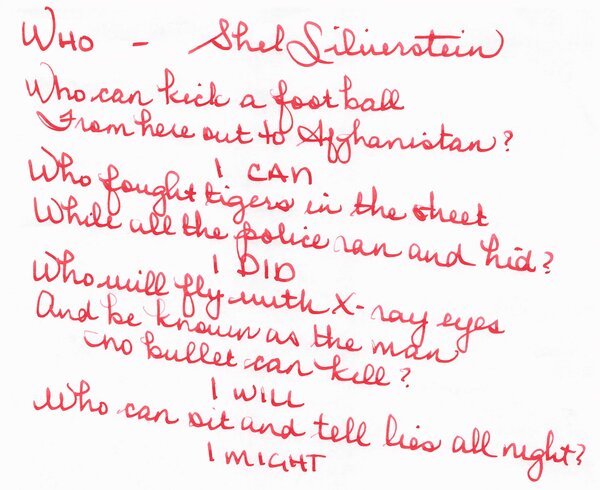 WHO - Shel Silverstein
Who can kick a football
From here out to Afghanistan?
I CAN
Who fought tigers in the street
While all the police ran and hid?
I DID
Who will fly with X-ray eyes
And be known as the man
no bullet can kill?
I WILL
Who can sit and tell lies all night?
I MIGHT